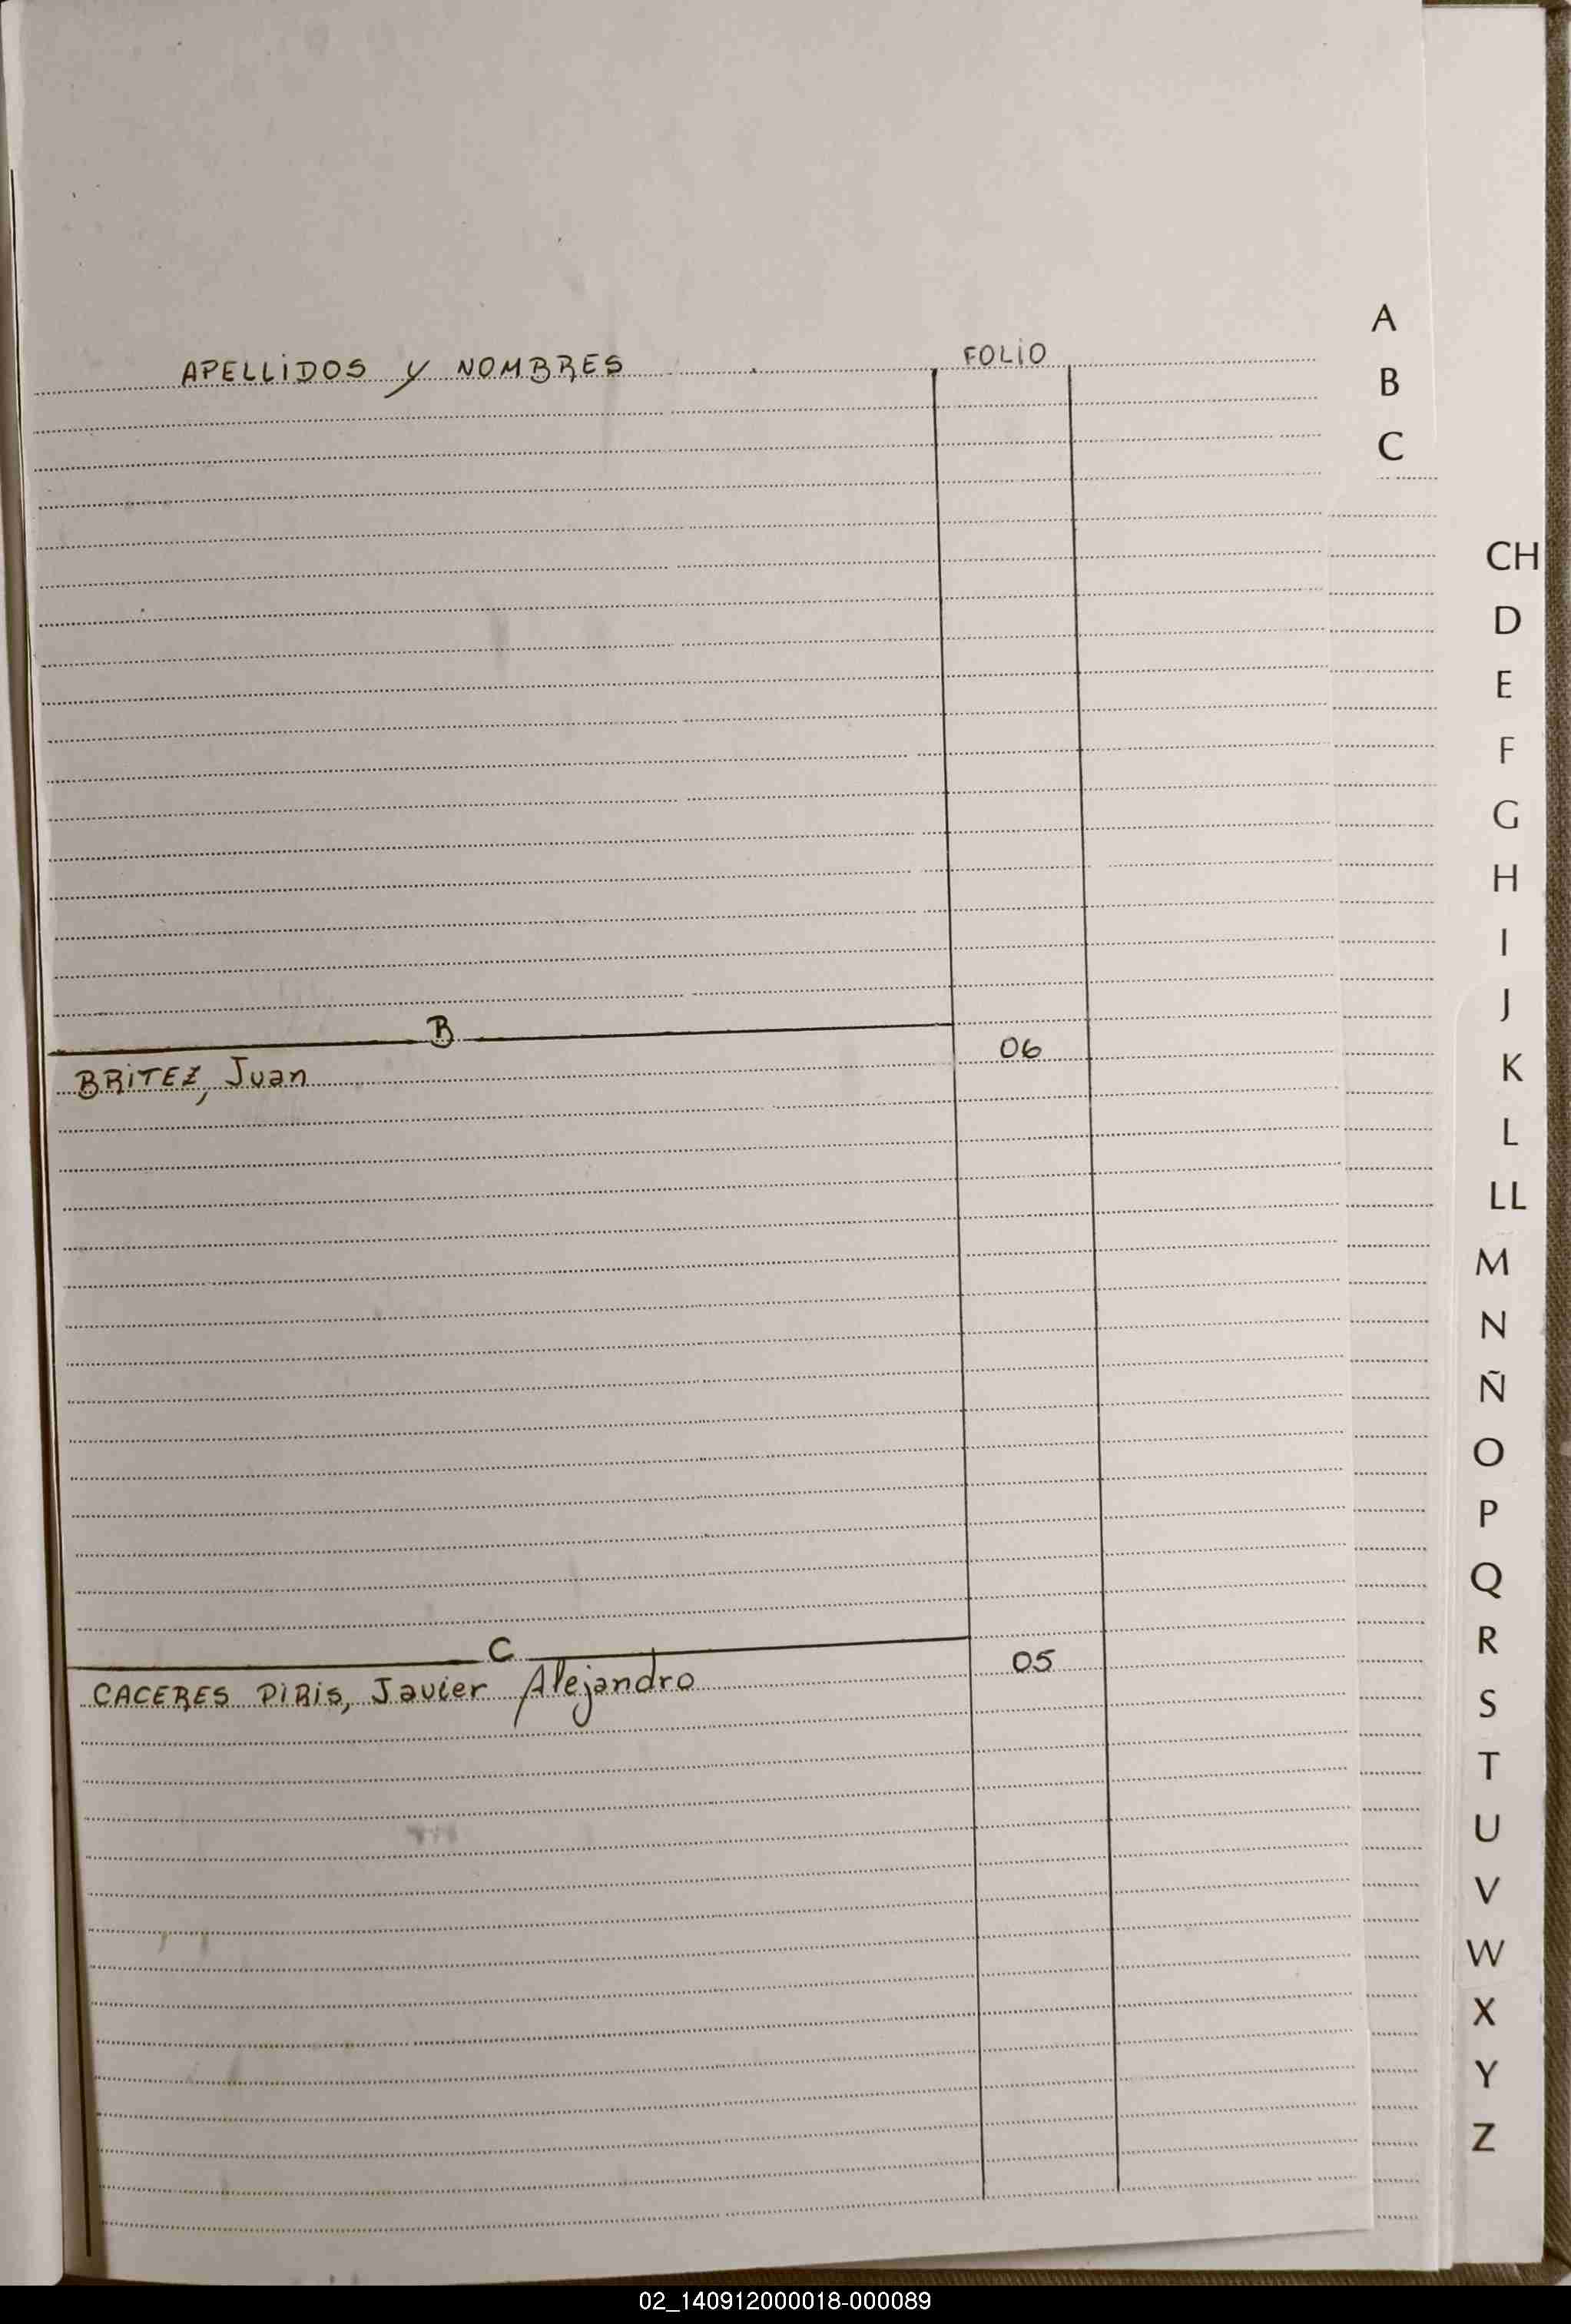 APELLIDOS y NOMBRES FOLIO
B
BRITEZ, Juan 06
C
CACERES PIRIS, Javier Alejandro 05
A
B
C
CH
D
E
F
G
H
I
J
K
L
LL
M
N
Ñ
O
P
Q
R
S
T
U
V
W
X
Y
Z
02_140912000018-000089